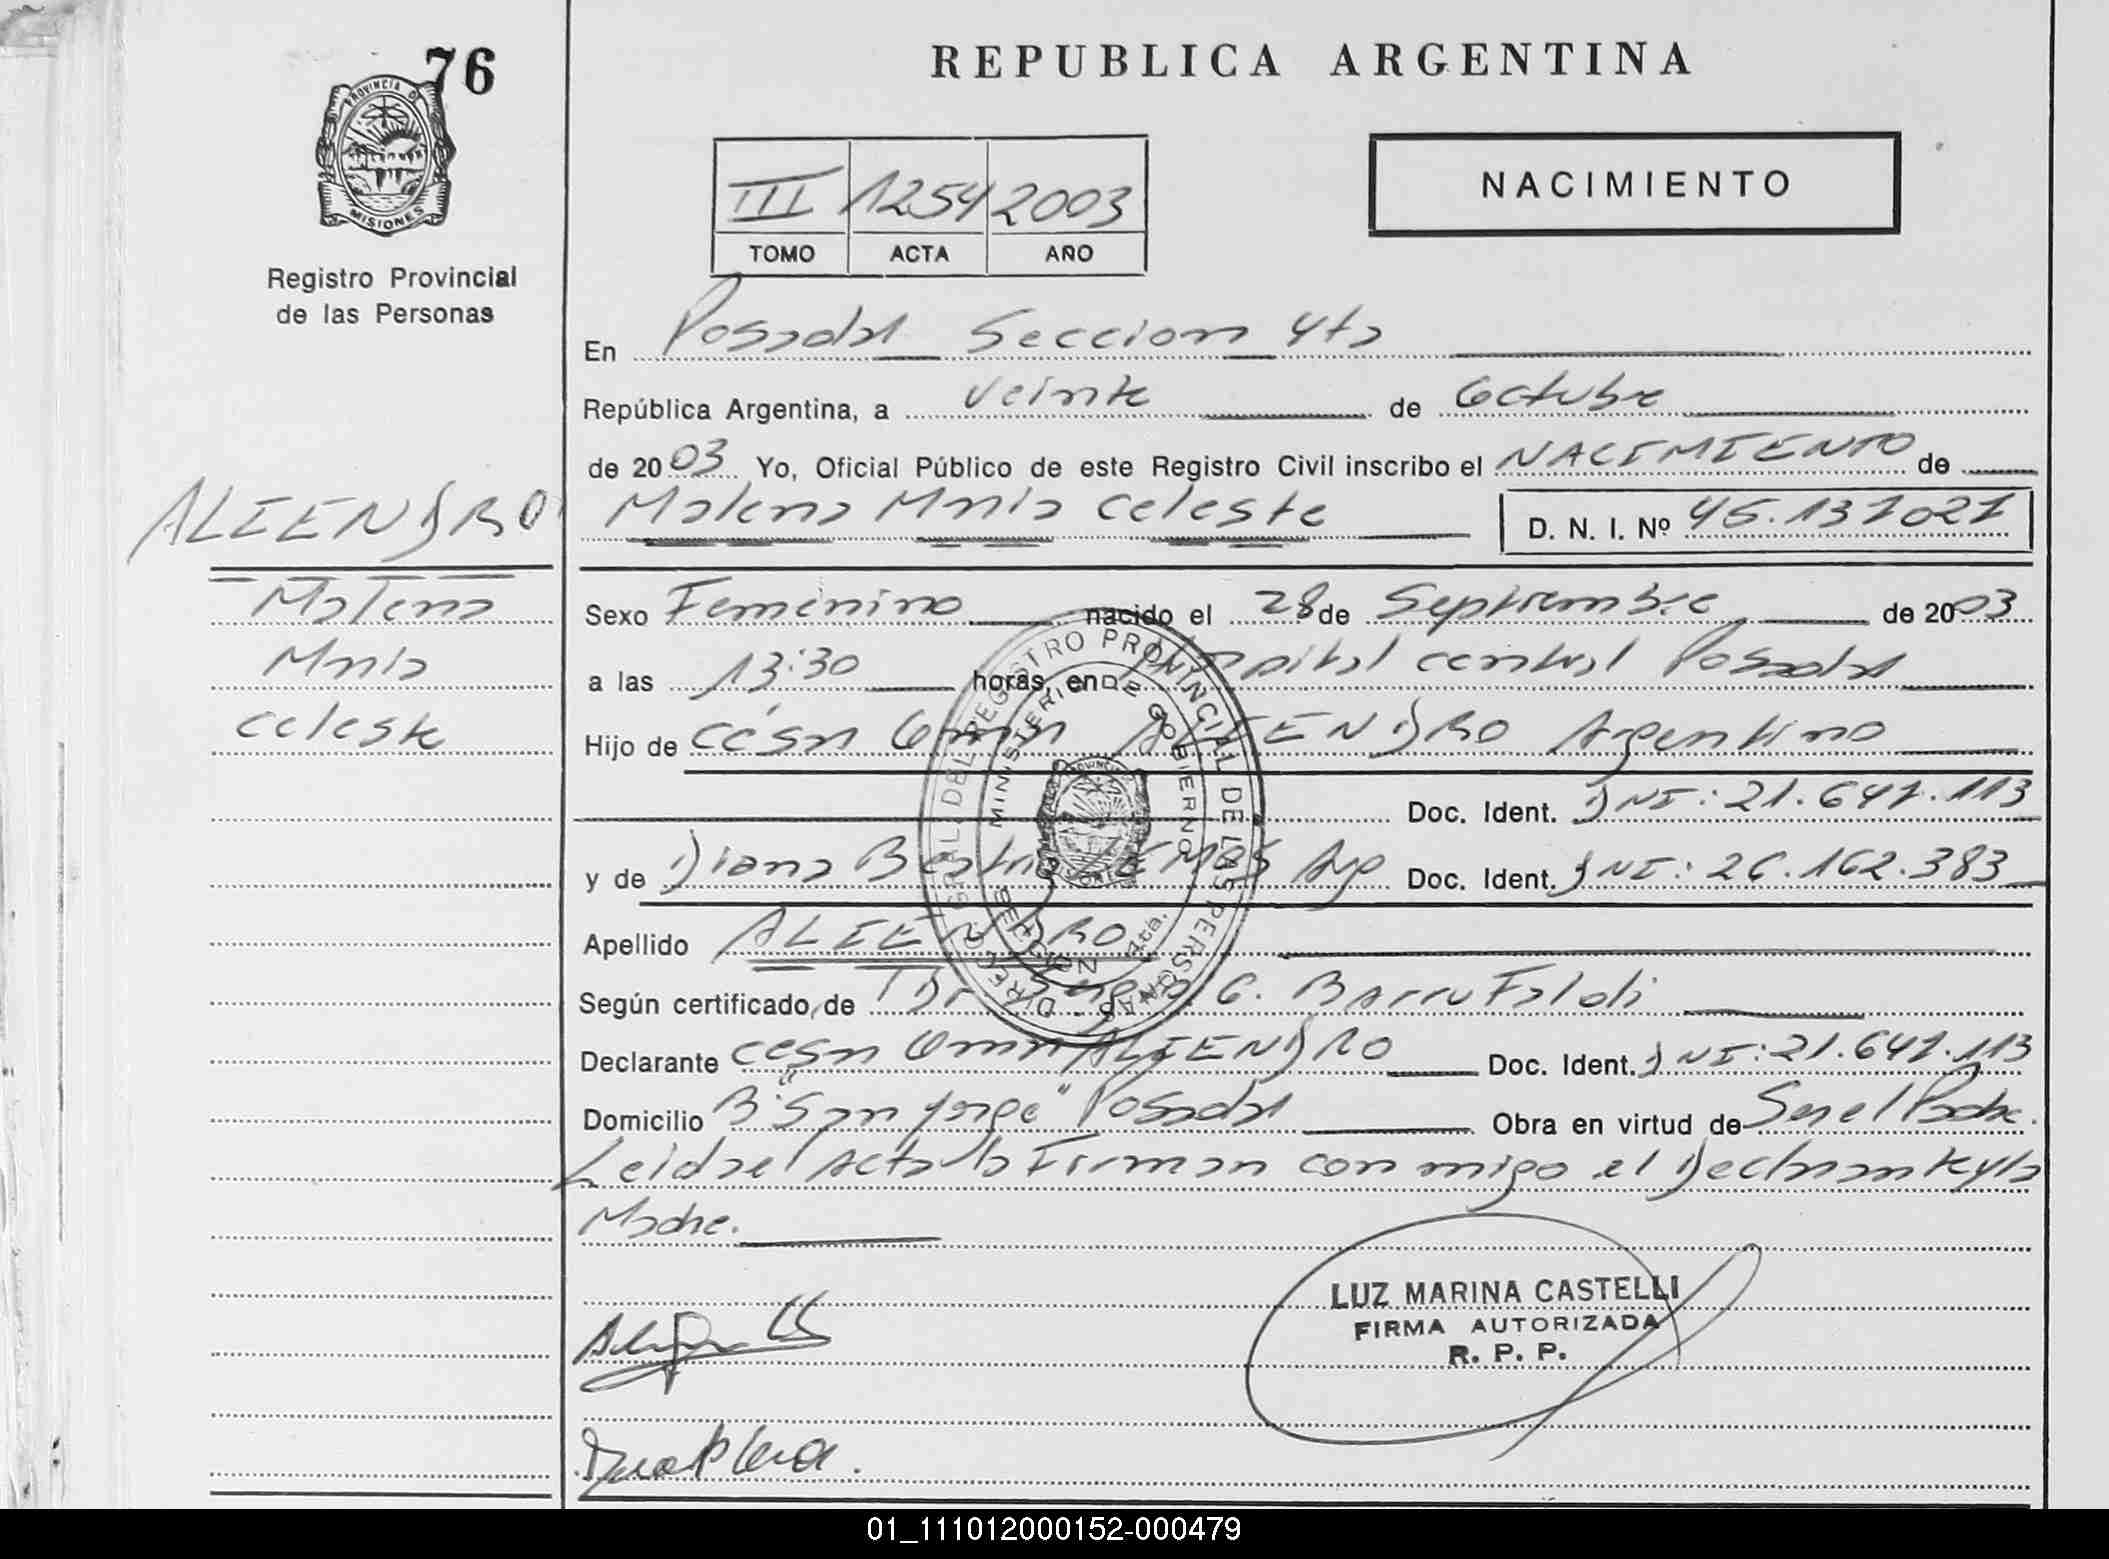 76
PROVINCIA DE
MISIONES
Registro Provincial
de las Personas
REPUBLICA ARGENTINA
III 1254 2003
TOMO ACTA AÑO
NACIMIENTO
En Posadas Seccion 4ta
República Argentina, a veinte de Octubre
de 2003 Yo, Oficial Público de este Registro Civil inscribo el NACIMIENTO de
Malena Maria Celeste D. N. I. Nº 45.137027
ALIENDRO
Malena
Maria
Celeste
Sexo Femenino nacido el 28 de Septiembre de 2003
a las 13:30 horas, en Hospital central Posadas
Hijo de César Omar ALIENDRO Argentino
Doc. Ident. DNI: 21.647.113
y de Diana Beatriz Arg Doc. Ident. DNI: 26.162.383
Apellido ALIENDRO
Según certificado, de
Declarante Cesar Omar ALIENDRO Doc. Ident. DNI: 21.647.113
Domicilio B° "San Jorge" Posadas Obra en virtud de Ser el Padre.
Leida el acta la Firman conmigo el Declarante y la
Madre.
DIRECC. GRAL. DEL REGISTRO PROVINCIAL DE LAS PERSONAS
MINISTERIO DE GOBIERNO
SECCION 4ta.
LUZ MARINA CASTELLI
FIRMA AUTORIZADA
R. P. P.
01_111012000152-000479